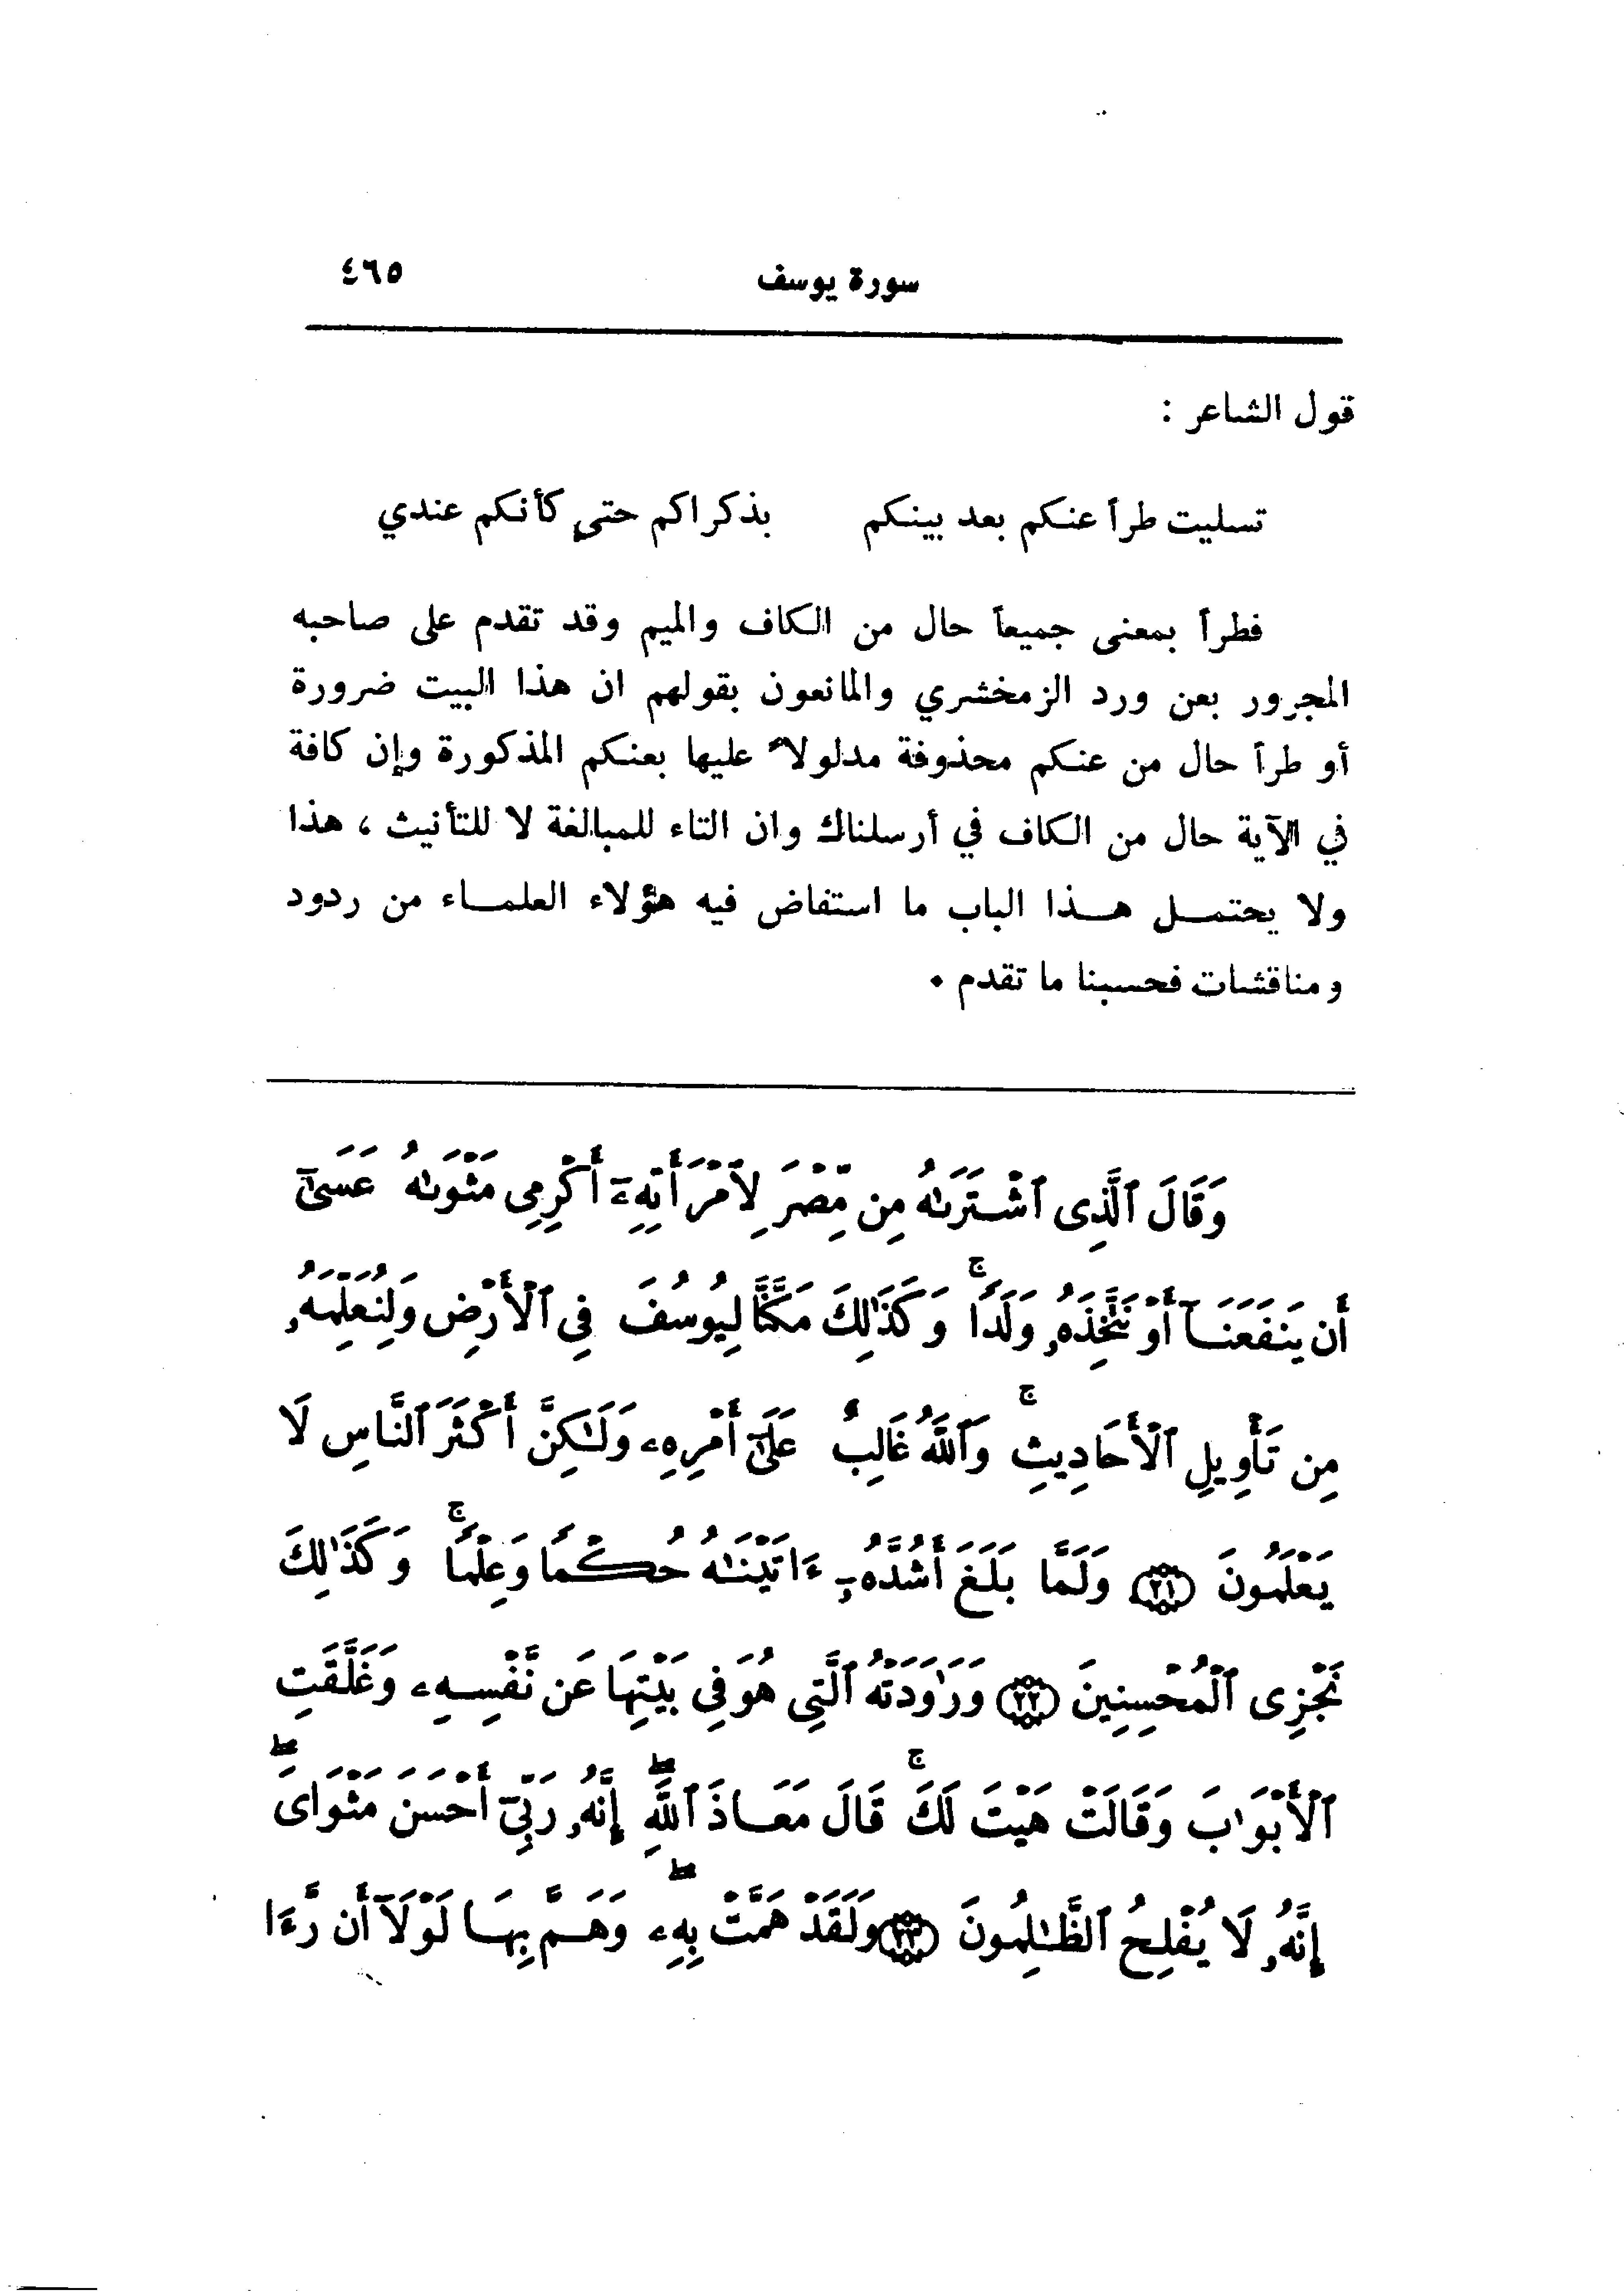 سورة يوسف ٤٦٥
قول الشاعر :
تسليت طراً عنكم بعد بينكم بذكراكم حتى كأنكم عندي
فطراً بمعنى جميعاً حال من الكاف والميم وقد تقدم على صاحبه
المجرور بعن ورد الزمخشري والمانعون بقولهم ان هذا البيت ضرورة
أو طراً حال من عنكم محذوفة مدلولاً عليها بعنكم المذكورة وإن كافة
في الآية حال من الكاف في أرسلناك وان التاء للمبالغة لا للتأنيث ، هذا
ولا يحتمــل هــذا الباب ما استفاض فيه هؤلاء العلمــاء من ردود
ومناقشات فحسبنا ما تقدم ٠
وَقَالَ ٱلَّذِى ٱشْتَرَىٰهُ مِن مِّصْرَ لِٱمْرَأَتِهِۦٓ أَكْرِمِى مَثْوَىٰهُ عَسَىٰٓ
أَن يَنفَعَنَآ أَوْ نَتَّخِذَهُۥ وَلَدًا ۚ وَكَذَٰلِكَ مَكَّنَّا لِيُوسُفَ فِى ٱلْأَرْضِ وَلِنُعَلِّمَهُۥ
مِن تَأْوِيلِ ٱلْأَحَادِيثِ ۚ وَٱللَّهُ غَالِبٌ عَلَىٰٓ أَمْرِهِۦ وَلَٰكِنَّ أَكْثَرَ ٱلنَّاسِ لَا
يَعْلَمُونَ ﴿٢١﴾ وَلَمَّا بَلَغَ أَشُدَّهُۥٓ ءَاتَيْنَٰهُ حُكْمًا وَعِلْمًا ۚ وَكَذَٰلِكَ
نَجْزِى ٱلْمُحْسِنِينَ ﴿٢٢﴾ وَرَٰوَدَتْهُ ٱلَّتِى هُوَ فِى بَيْتِهَا عَن نَّفْسِهِۦ وَغَلَّقَتِ
ٱلْأَبْوَٰبَ وَقَالَتْ هَيْتَ لَكَ ۚ قَالَ مَعَاذَ ٱللَّهِ ۖ إِنَّهُۥ رَبِّىٓ أَحْسَنَ مَثْوَاىَ ۖ
إِنَّهُۥ لَا يُفْلِحُ ٱلظَّٰلِمُونَ ﴿٢٣﴾ وَلَقَدْ هَمَّتْ بِهِۦ ۖ وَهَمَّ بِهَا لَوْلَآ أَن رَّءَا